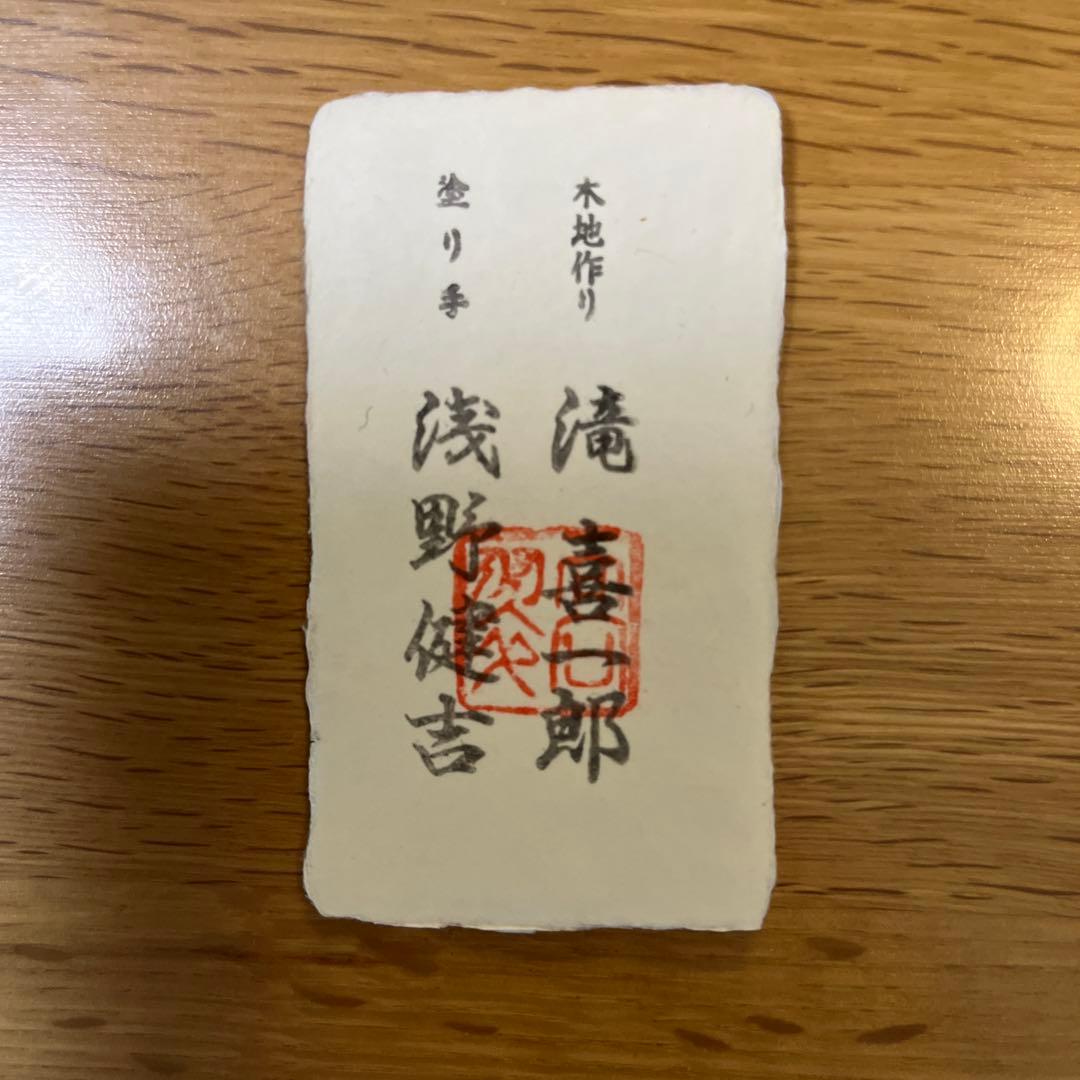 木地作り 滝 喜一郎
塗り手 浅野健吉